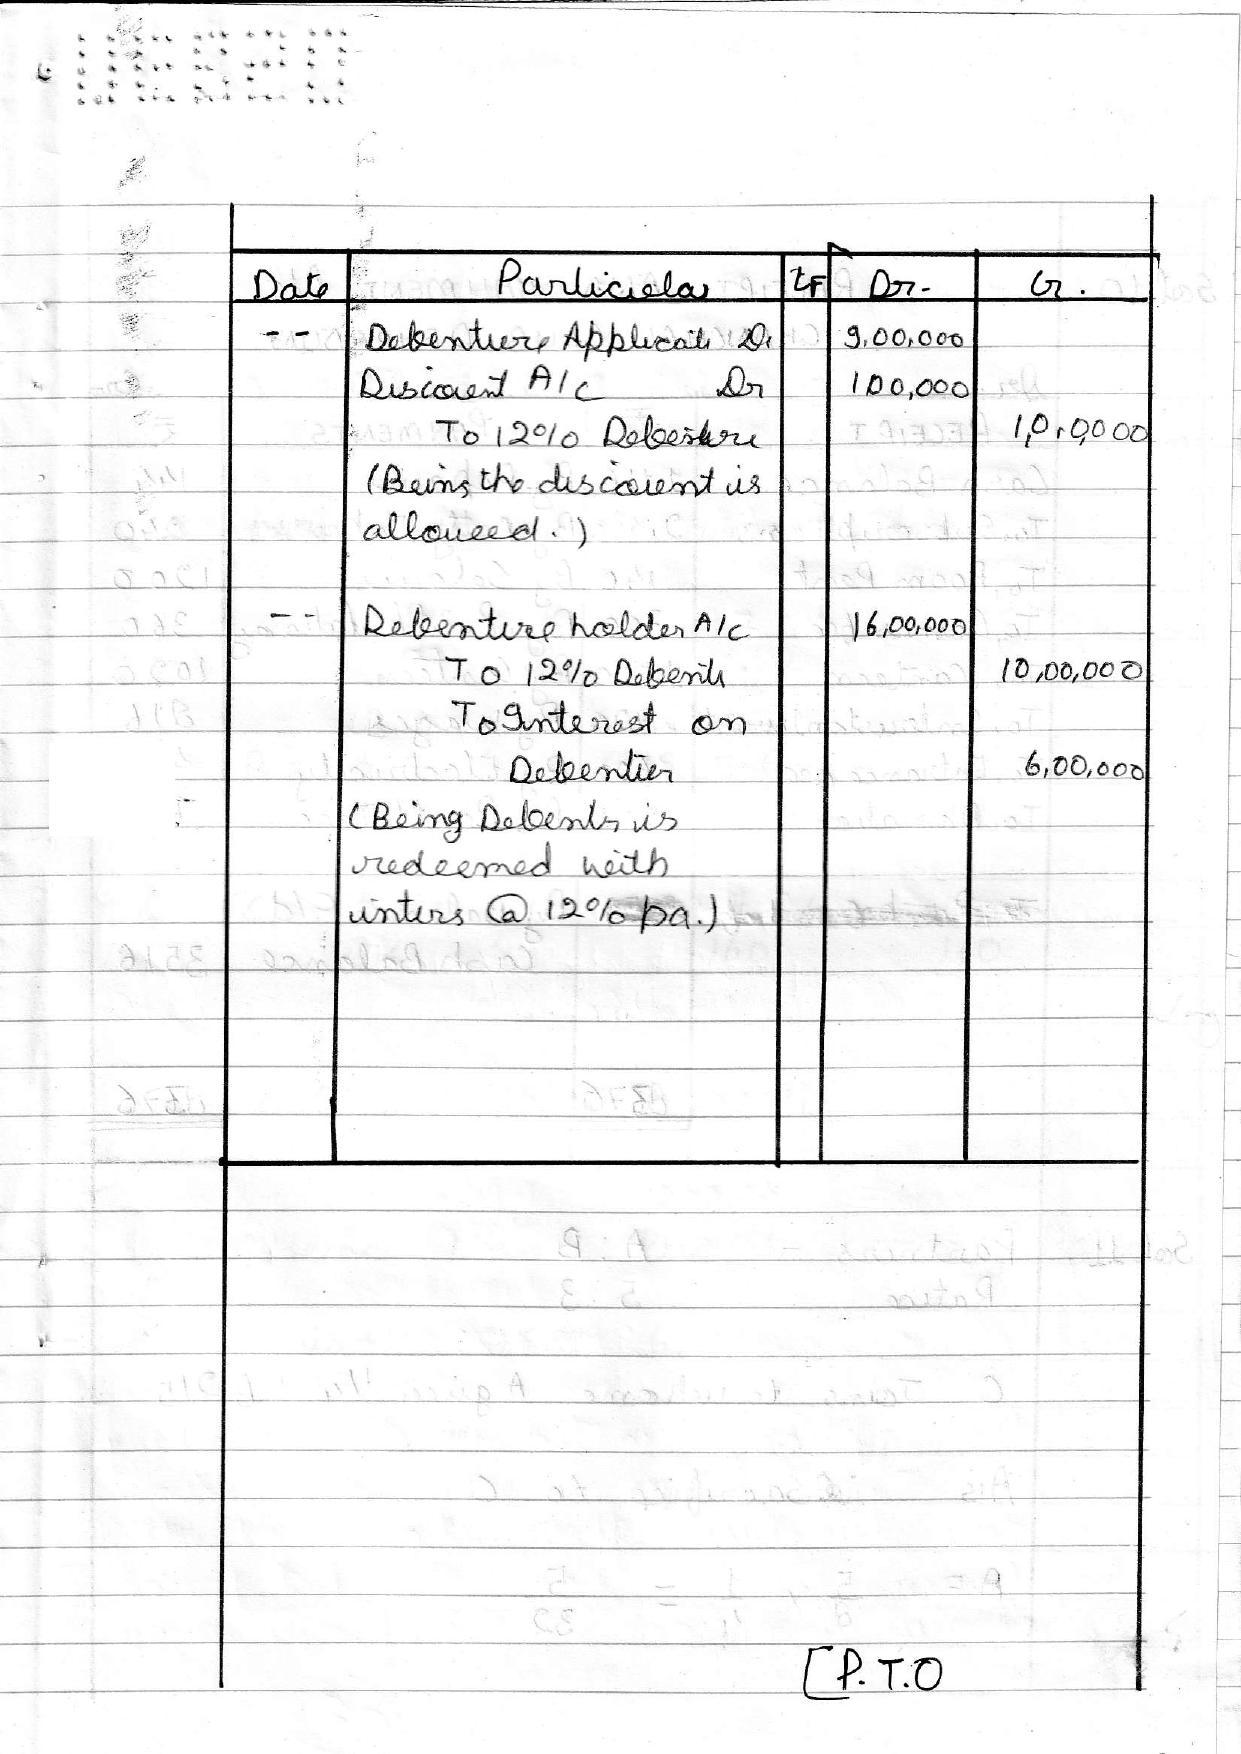 Date Particular LF Dr. Cr.
-- Debenture Applicati Dr 9,00,000
Discount A/c Dr 100,000
To 12% Debenture 1,0,0,000
(Being the discount is
alloweed.)
-- Debenture holder A/c 16,00,000
To 12% Debent 10,00,000
To Interest on
Debentier 6,00,000
(Being Debents is
redeemed with
inters @ 12% pa.)
[P.T.O